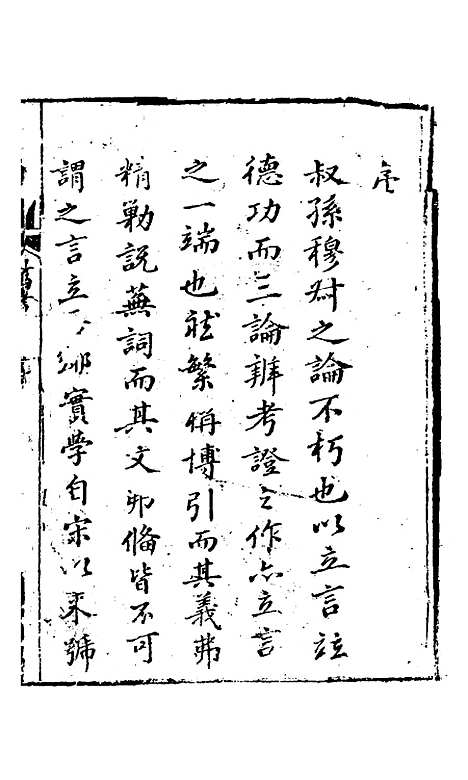 序
叔孫穆叔之論不朽也以立言竝
德功而三論辨考證之作亦立言
之一端也然繁稱博引而其義弗
精勦說蕪詞而其文即偹皆不可
謂之言立實學自宋以來號